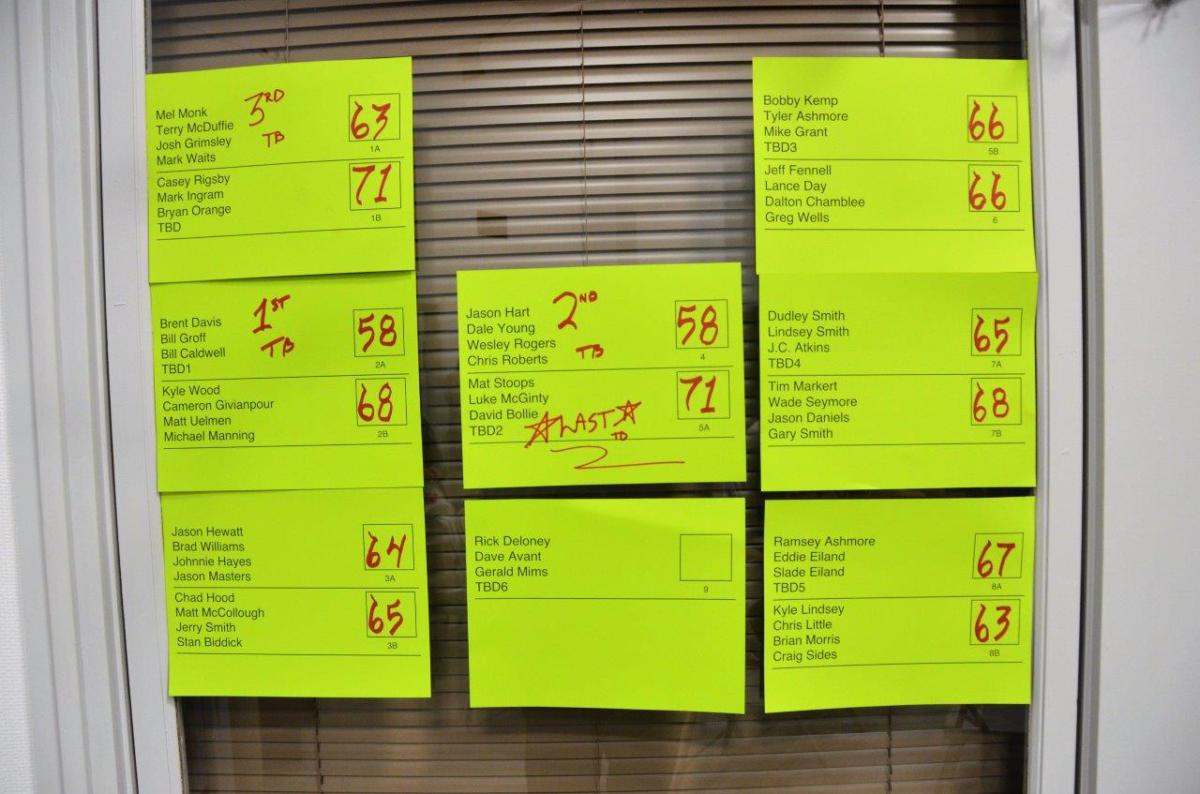 Mel Monk
Terry McDuffie
Josh Grimsley
Mark Waits
3RD
TB
63
1A
Casey Rigsby
Mark Ingram
Bryan Orange
TBD
71
1B
Brent Davis
Bill Groff
Bill Caldwell
TBD1
1ST
TB
58
2A
Kyle Wood
Cameron Givianpour
Matt Uelmen
Michael Manning
68
2B
Jason Hewatt
Brad Williams
Johnnie Hayes
Jason Masters
64
3A
Chad Hood
Matt McCollough
Jerry Smith
Stan Biddick
65
3B
Jason Hart
Dale Young
Wesley Rogers
Chris Roberts
2ND
TB
58
4
Mat Stoops
Luke McGinty
David Bollie
TBD2
LAST
TB
71
5A
Rick Deloney
Dave Avant
Gerald Mims
TBD6
9
Bobby Kemp
Tyler Ashmore
Mike Grant
TBD3
66
5B
Jeff Fennell
Lance Day
Dalton Chamblee
Greg Wells
66
6
Dudley Smith
Lindsey Smith
J.C. Atkins
TBD4
65
7A
Tim Markert
Wade Seymore
Jason Daniels
Gary Smith
68
7B
Ramsey Ashmore
Eddie Eiland
Slade Eiland
TBD5
67
8A
Kyle Lindsey
Chris Little
Brian Morris
Craig Sides
63
8B